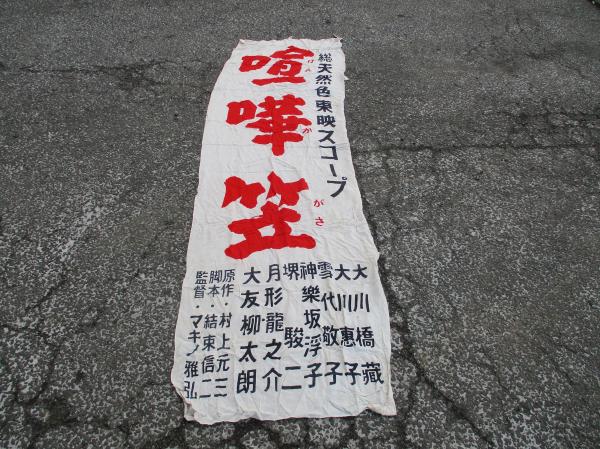 総天然色東映スコープ
喧嘩笠
けんかがさ
大川橋蔵
大川惠子
雪代敬子
神樂坂浮子
堺駿二
月形龍之介
大友柳太朗
原作・村上元三
脚本・結束信二
監督・マキノ雅弘